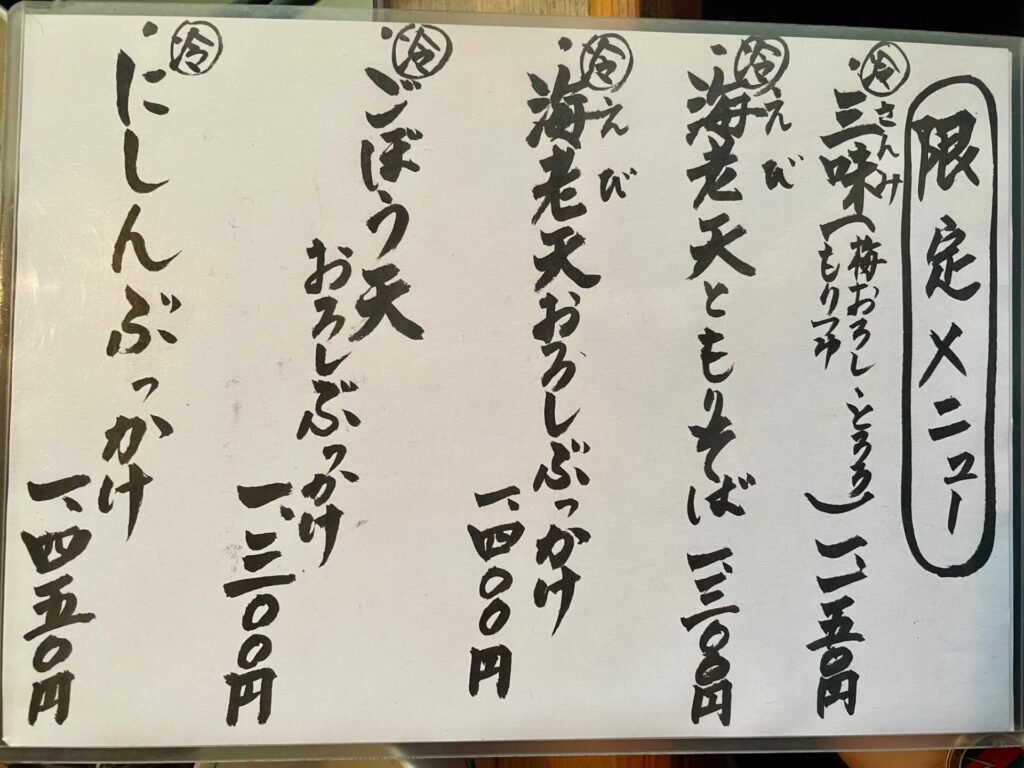 限定メニュー
冷
さんみ
・三味(梅おろし、とろろ)
もり
一、一五〇円
冷
えび
・海老天ともりそば 一、三〇〇円
冷
えび
・海老天おろしぶっかけ
一、四〇〇円
冷
・ごぼう天
おろしぶっかけ
一、三〇〇円
冷
・にしんぶっかけ
一、四五〇円